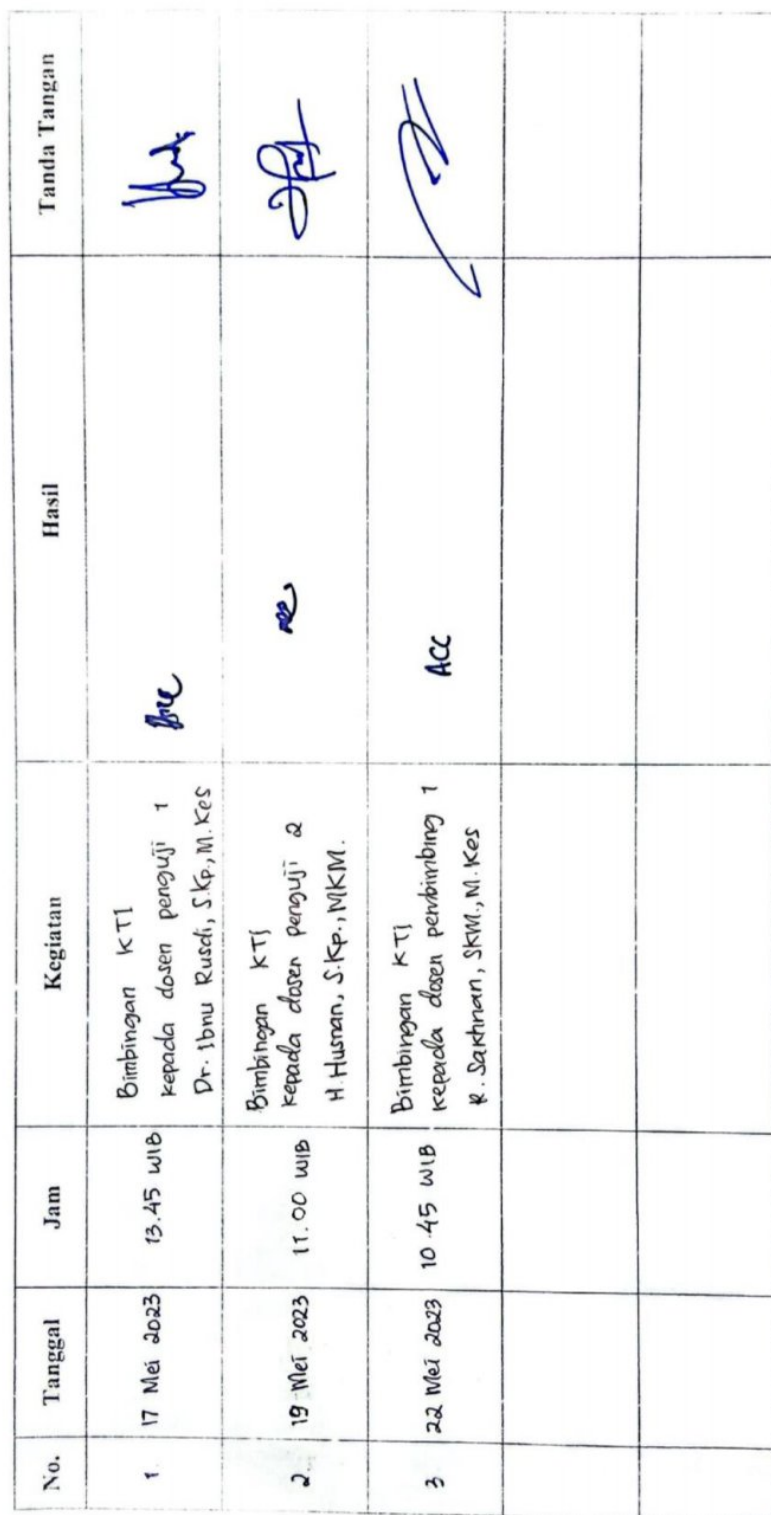 No. Tanggal Jam Kegiatan Hasil Tanda Tangan
1. 17 Mei 2023 13.45 WIB Bimbingan KTI
kepada dosen penguji 1
Dr. Ibnu Rusdi, S.Kp., M.Kes
Acc
2. 19 Mei 2023 11.00 WIB Bimbingan KTI
kepada dosen penguji 2
H. Husnan, S.Kp., MKM.
acc
3 22 Mei 2023 10.45 WIB Bimbingan KTI
kepada dosen pembimbing 1
R. Sakhnan, SKM., M.Kes
ACC